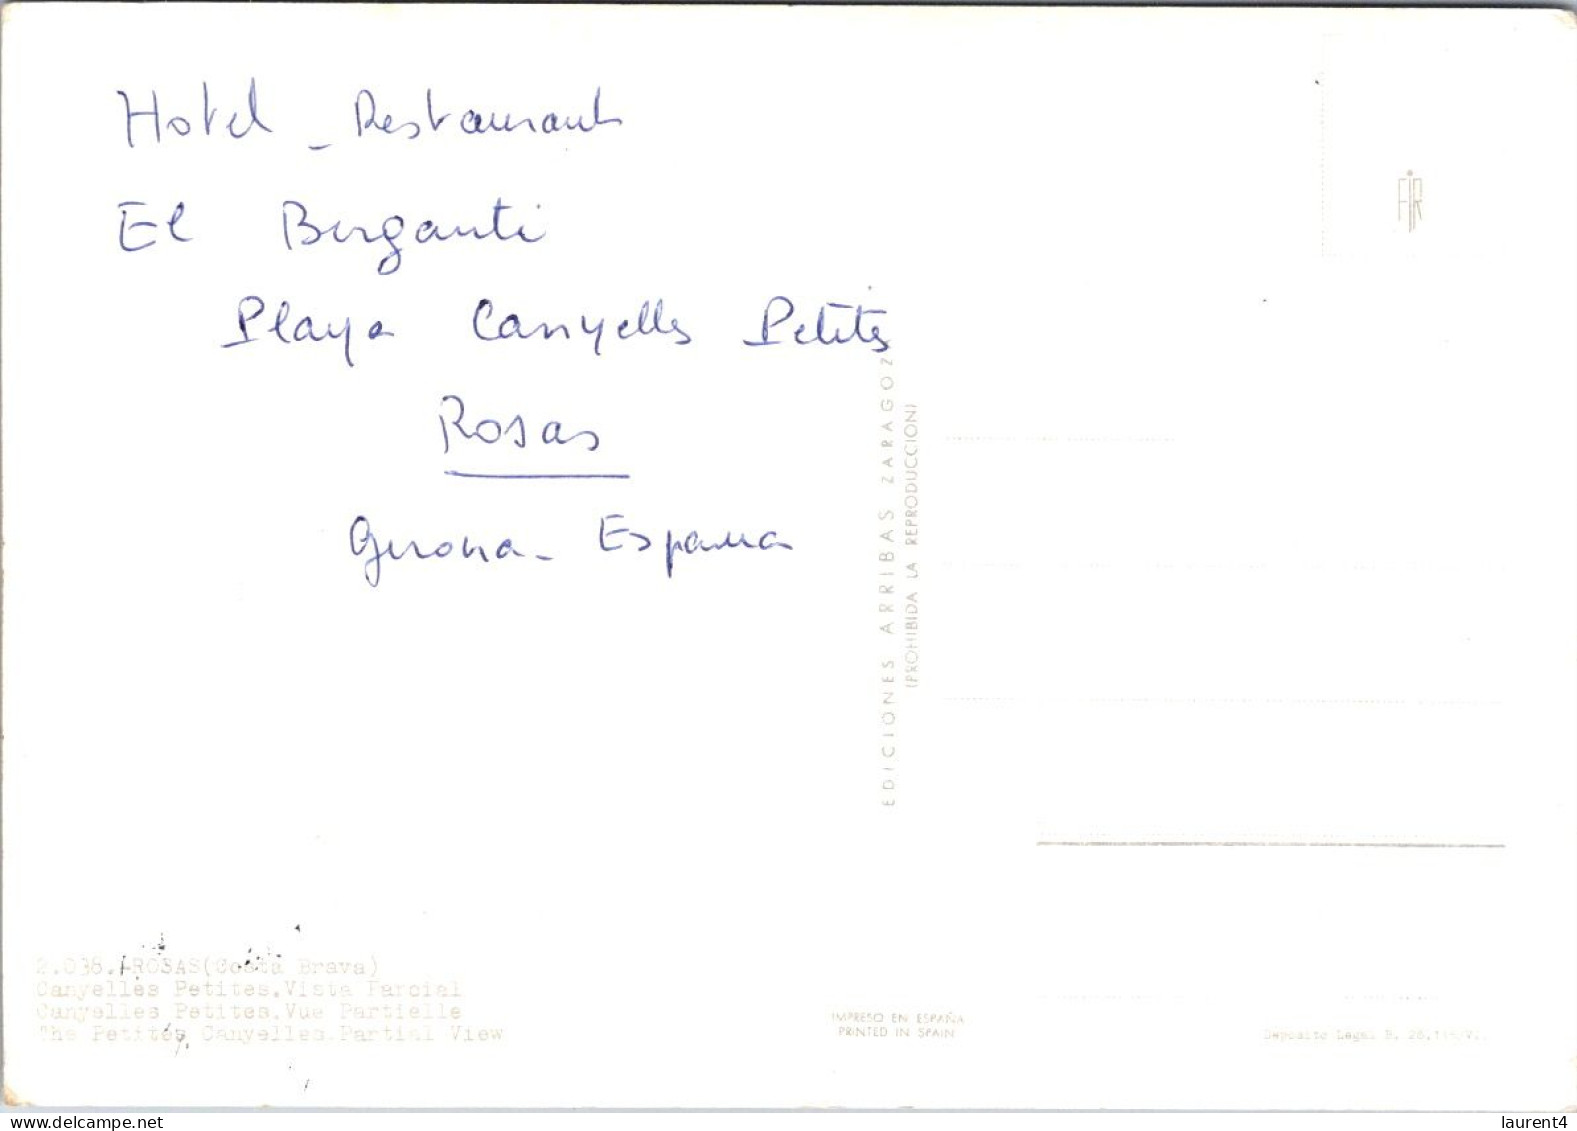 Hotel - Restaurant
El Berganti
Playa Canyelles Petites
Rosas
Gerona - Espana
EDICIONES ARRIBAS ZARAGOZ
(PROHIBIDA LA REPRODUCCION)
FIR
2.038.-ROSAS(Costa Brava)
Canyelles Petites.Vista Parcial
Canyelles Petites.Vue Partielle
The Petites Canyelles.Partial View
IMPRESO EN ESPAÑA
PRINTED IN SPAIN
Deposito Legal B.
laurent4